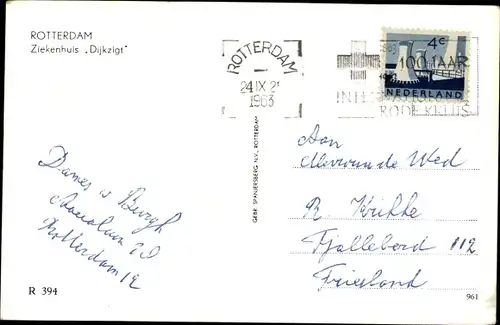 ROTTERDAM
Ziekenhuis „Dijkzigt"
ROTTERDAM
24 IX 21
1963
4c
NEDERLAND
100 JAAR
RODE KRUIS
GEBR. SPANJERSBERG N.V., ROTTERDAM
Aan
Mevrouw de Wed
R.
112
Friesland
Dames v Bergh
Rotterdam 12
R 394
961